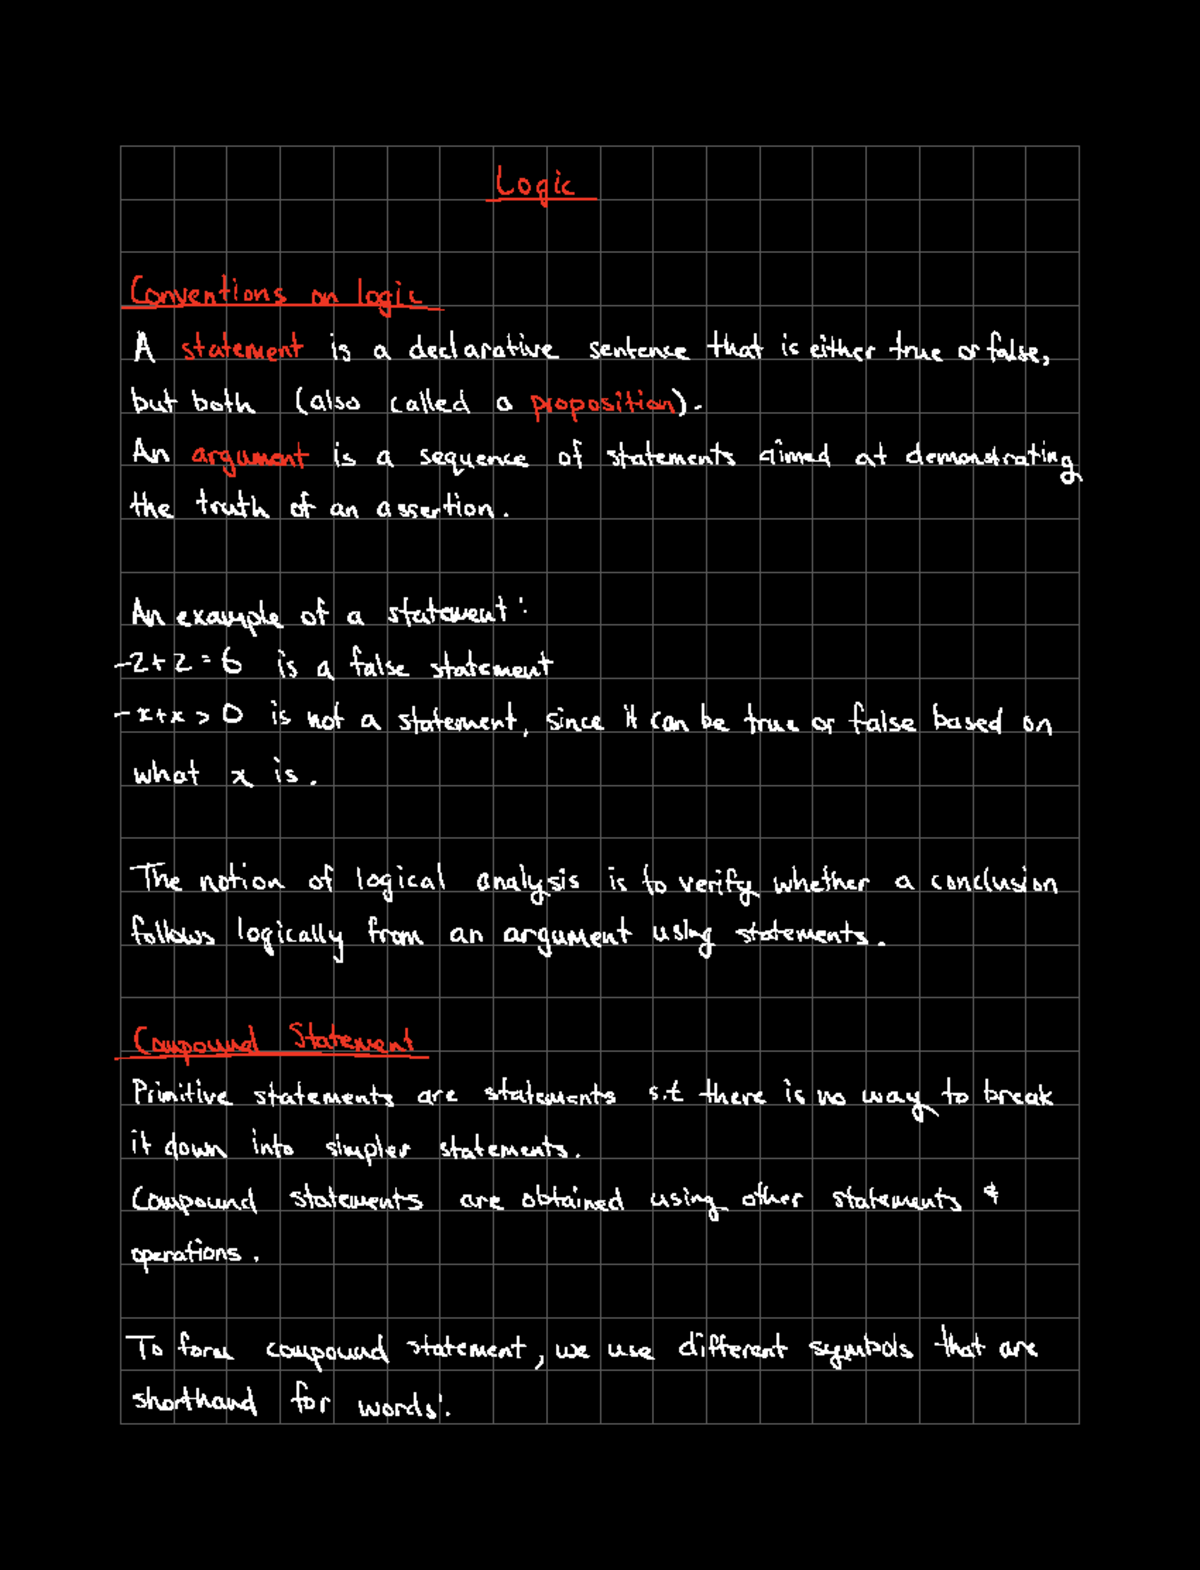 Logic
Conventions on logic
A statement is a declarative sentence that is either true or false,
but both (also called a proposition).
An argument is a sequence of statements aimed at demonstrating
the truth of an assertion.
An example of a statement:
-2+2=6 is a false statement
-x+x>0 is not a statement, since it can be true or false based on
what x is.
The notion of logical analysis is to verify whether a conclusion
follows logically from an argument using statements.
Compound Statement
Primitive statements are statements s.t there is no way to break
it down into simpler statements.
Compound statements are obtained using other statements &
operations.
To form compound statement, we use different symbols that are
shorthand for words:.